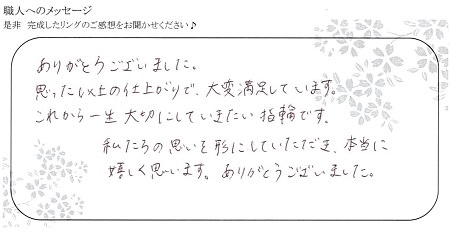 職人へのメッセージ
是非 完成したリングのご感想をお聞かせください♪
ありがとうございました。
思った以上の仕上がりで、大変満足しています。
これから一生大切にしていきたい指輪です。
私たちの思いを形にしていただき、本当に
嬉しく思います。ありがとうございました。